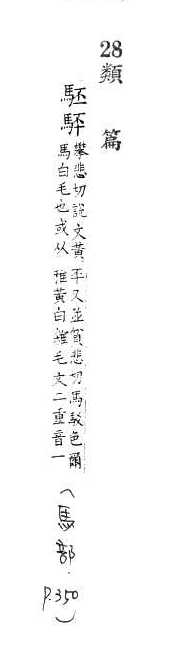 28 類篇
駓駍
攀悲切說文黃
馬白毛也或从
平又並貧悲切馬駁色爾
雅黃白雜毛文二重音一
(馬部.P.350)